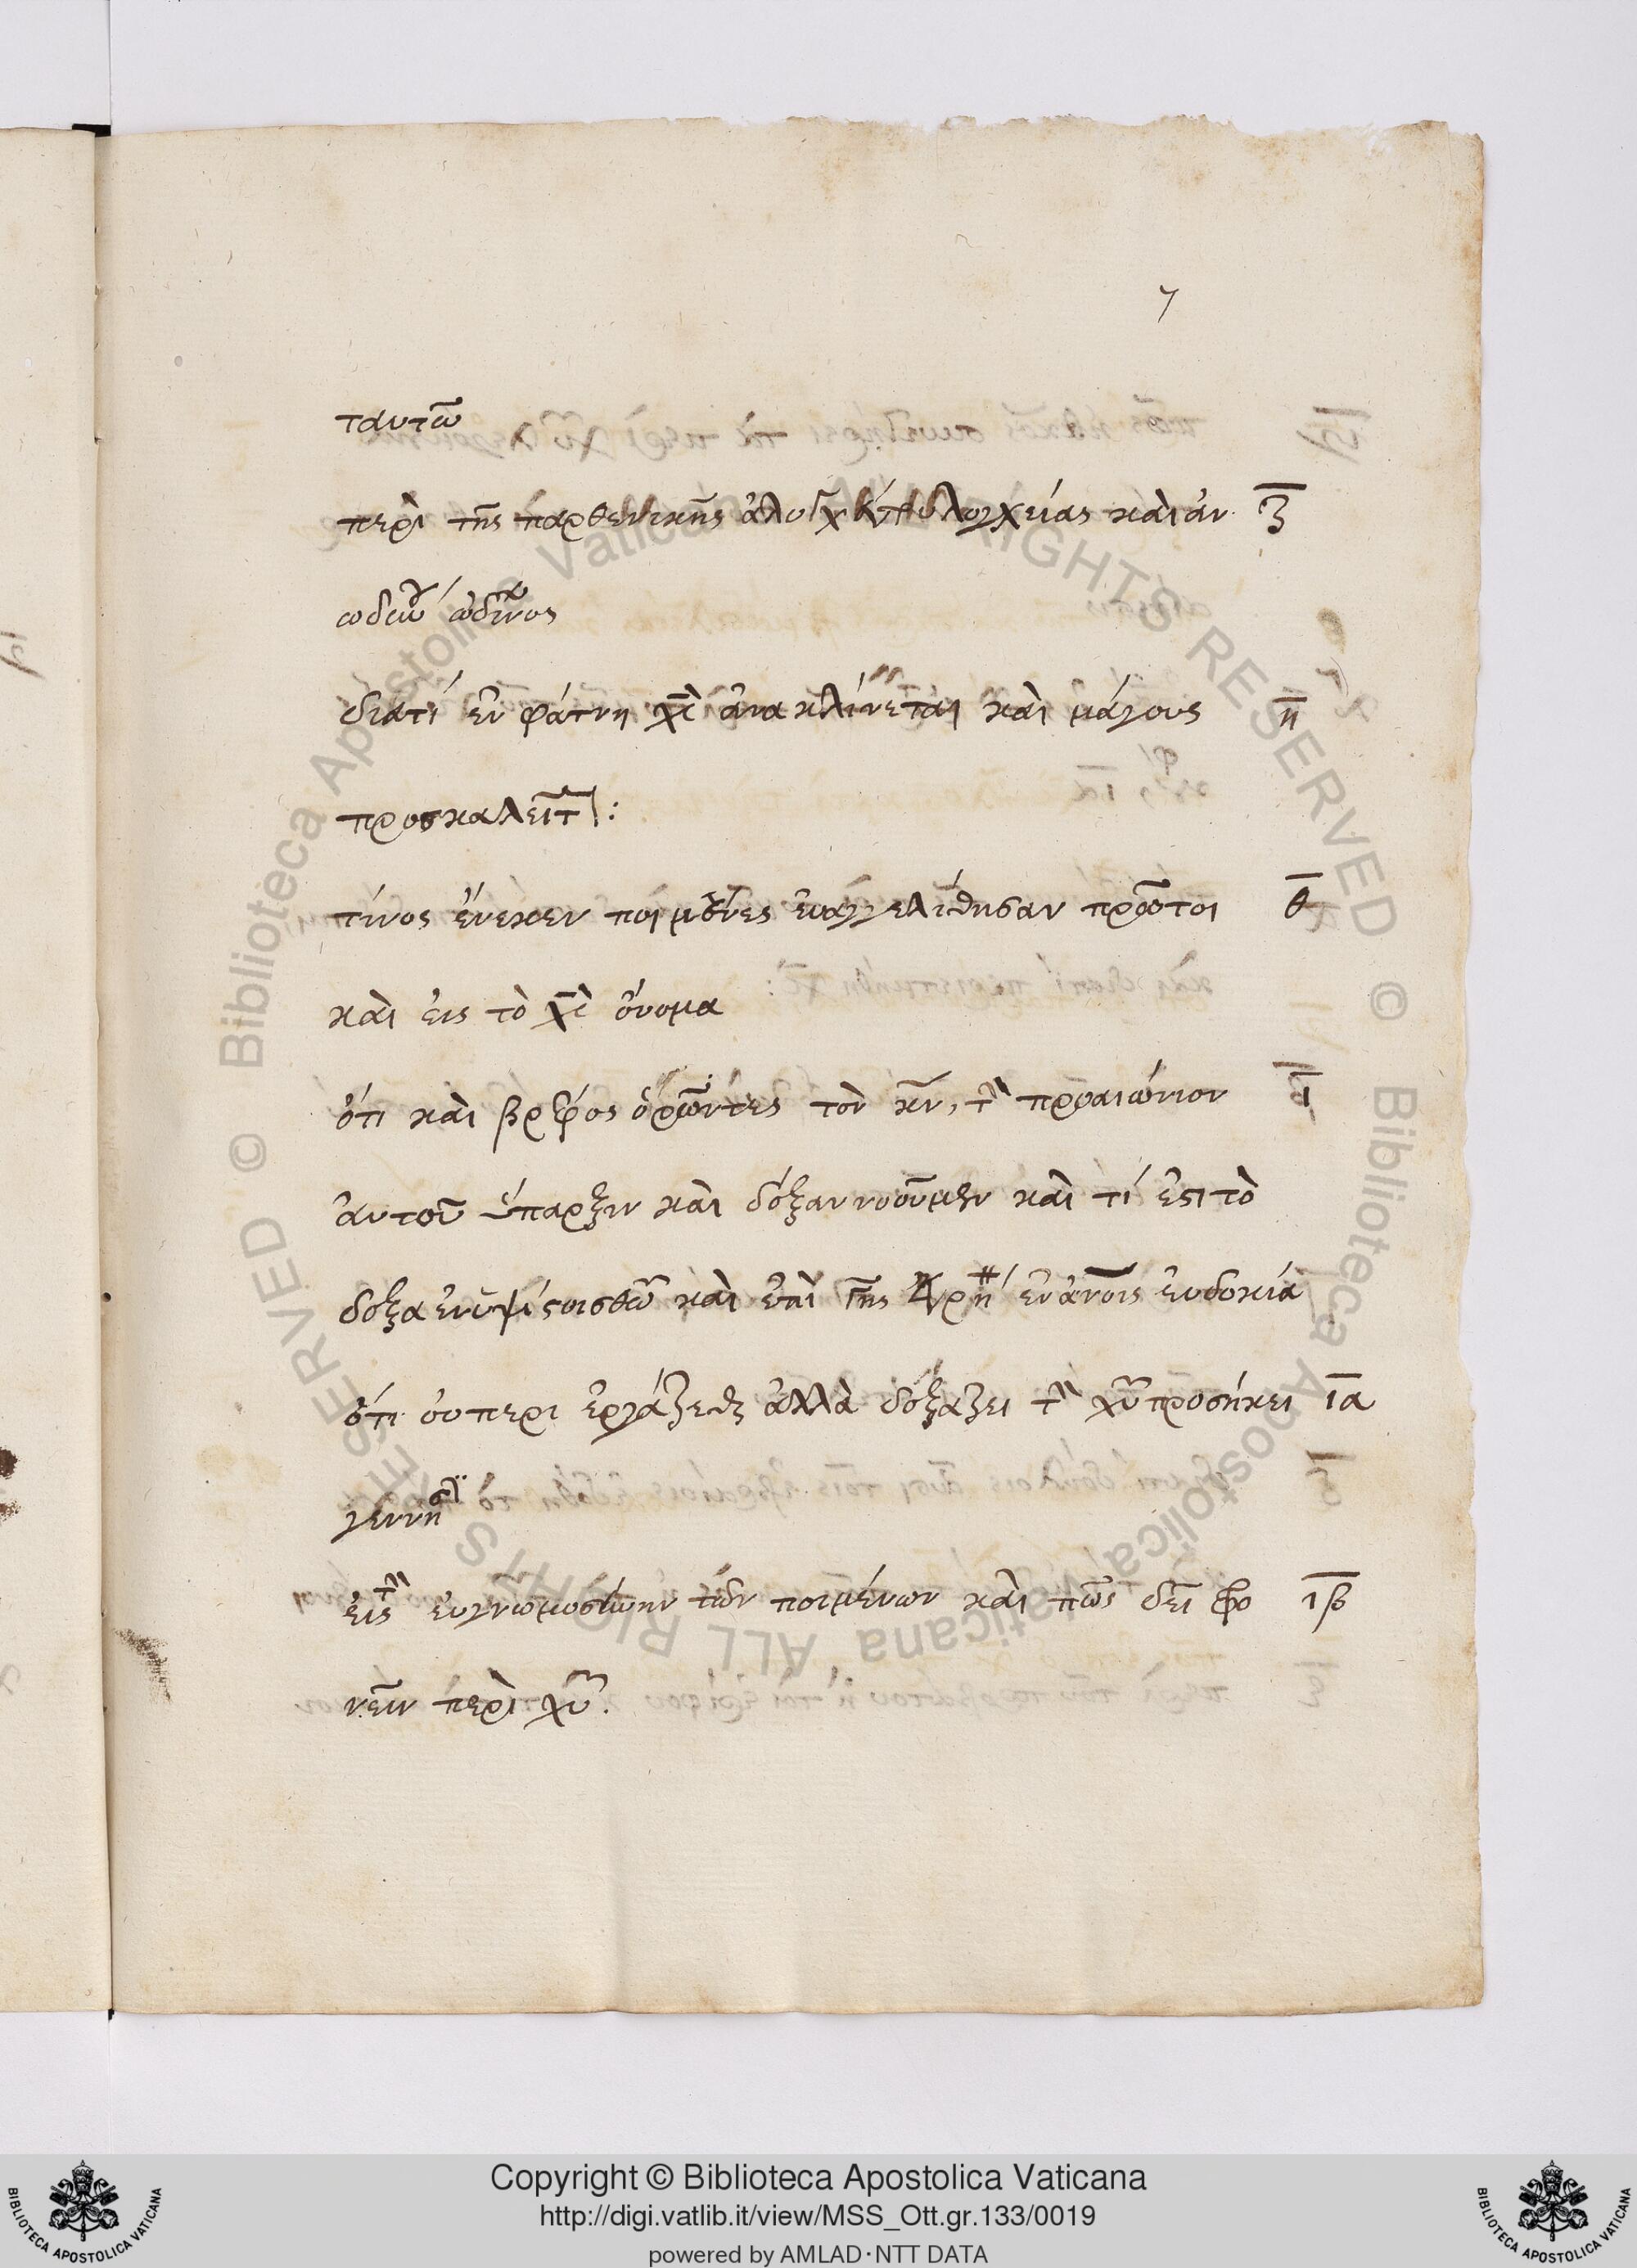 7
ταυτῶ
περὶ τῆς παρθενικῆς λοχείας καὶ ἀν ζ
ὠδῖνος
διατί ἐν φάτνη χς ἀνακλίνεται καὶ μάγους η
προσκαλεῖτ:
τίνος ἕνεκεν ποιμένες ευαγγελίσθησαν πρῶτοι θ
καὶ εἰς τὸ χς ὄνομα
ὅτι καὶ βρέφος ὁρῶντες τὸν κν, τὴν προαιώνιον ι
ἀυτοῦ ὕπαρξιν καὶ δόξαν νοοῦμεν καὶ τί ἐστι τὸ
δόξα ἐν ὑψίστοις θῶ καὶ ἐπὶ γῆς ἐν ἀνοις ευδοκία
ὅτι ὀυ περιεργάζεσθαι ἀλλὰ δοξάζει τὴν χυ προσήκει ια
γεννησι
εἰς τὴν ευγνωμοσύνην τῶν ποιμένων καὶ πῶς δεῖ φρο ιβ
νεῖν περὶ χυ.
Biblioteca Apostolica Vaticana ALL RIGHTS RESERVED © Biblioteca Apostolica Vaticana ALL RIGHTS RESERVED ©
Copyright © Biblioteca Apostolica Vaticana
http://digi.vatlib.it/view/MSS_Ott.gr.133/0019
powered by AMLAD·NTT DATA
BIBLIOTECA APOSTOLICA VATICANA
BIBLIOTECA APOSTOLICA VATICANA